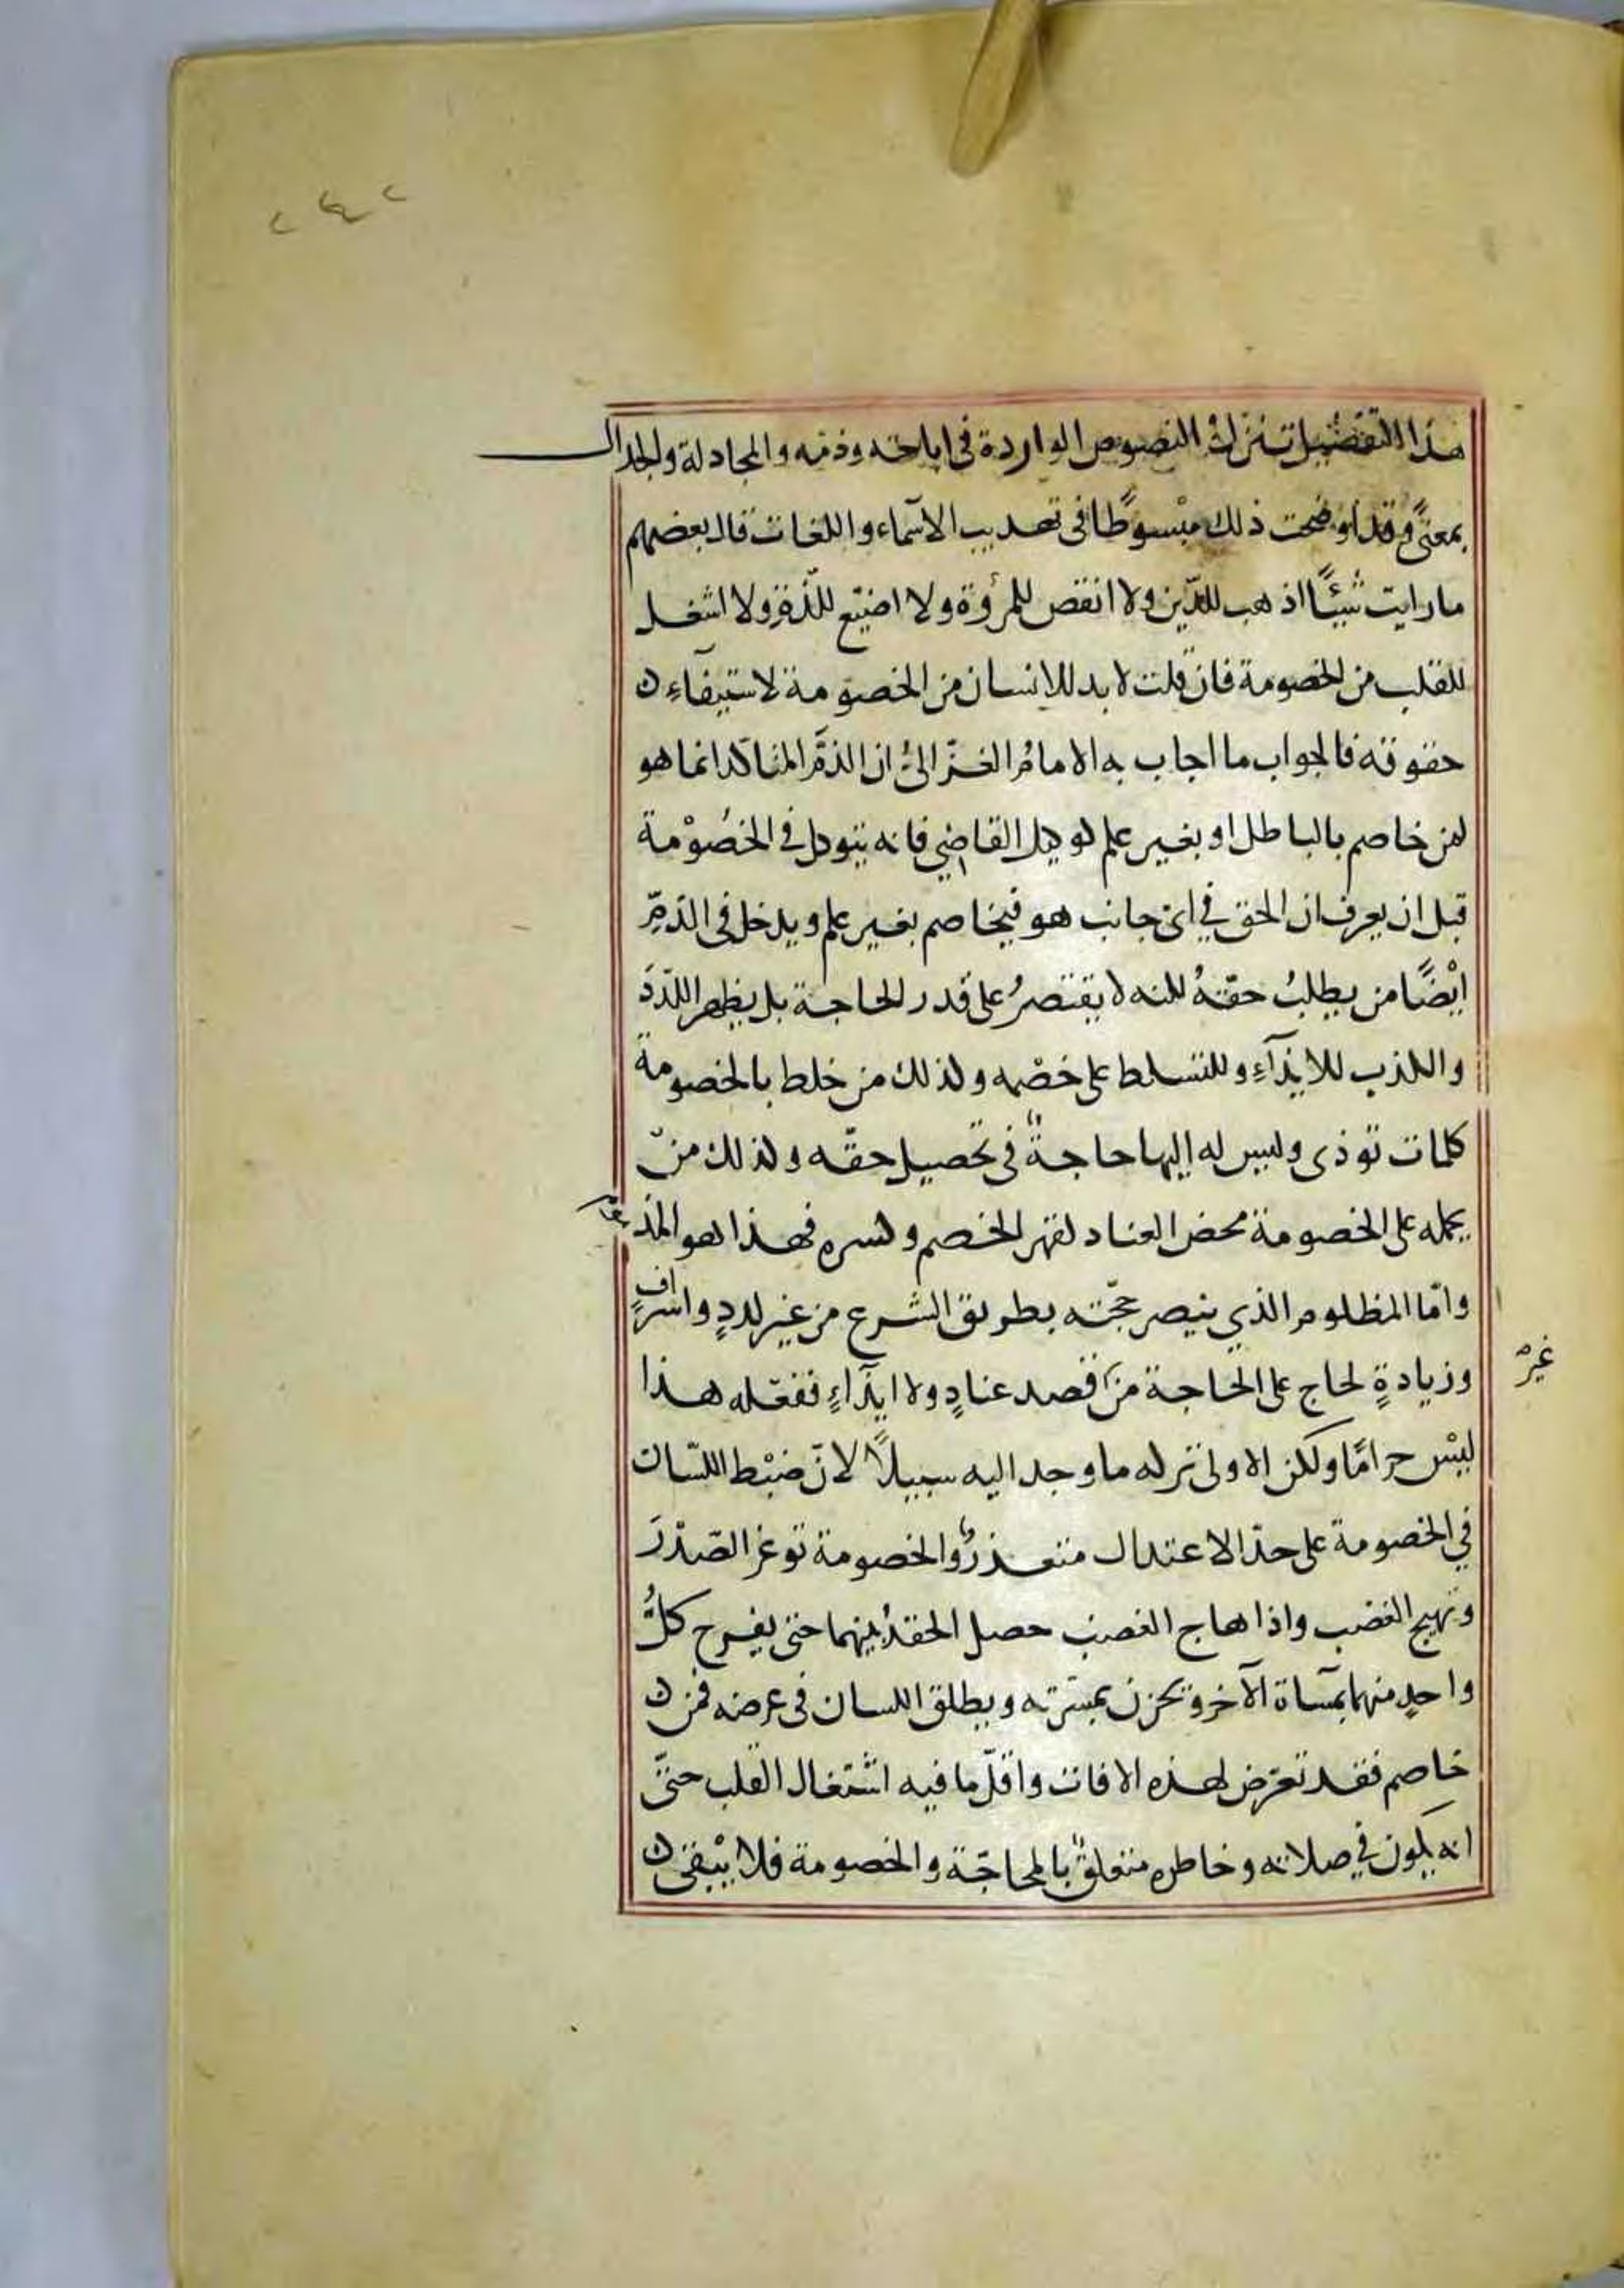 ٢٤٢
هذا التفضيل تنزل النصوص الواردة في اباحته وذمه والمجادلة والجدال
بمعنًى وقد اوضحت ذلك مبْسوطًا في تهذيب الاسماء واللغات قال بعضهم
ما رايت شيئًا اذهب للدّين ولا انقص للمرؤة ولا اضيّع للّذة ولا اشغل
للقلب من الخصومة فان قلت لا بد للانسان من الخصومة لاستيفاءِ
حقوقه فالجواب ما اجاب به الامامُ الغزّالىُ ان الذمَّ المتاكد انما هو
لمن خاصم بالباطل او بغير علم كوكيل القاضي فانه يتوكل في الخصُوْمة
قبل ان يعرف ان الحق في اىّ جانب هو فيخاصم بغير علم ويدخل فى الذمِّ
ايْضًا من يطلبُ حقّهُ لكنه لا يقتصرُ على قدر الحاجة بل يظهر اللّدَدَ
والكذب للايذآءِ وللتسلط على خصْمه وكذلك من خلط بالخصومة
كلمات توذى وليس له إليها حاجةٌ في تحصيل حقّه وكذلك منْ
يحمله على الخصومة محض العناد لقهر الخصم وكسره فهذا هو المذموم
وامّا المظلوم الذي ينصر حجّته بطريق الشرع من غير لددٍ واسرافٍ
وزيادةٍ لحاج على الحاجة من قصد عنادٍ ولا ايذآءٍ ففعله هذا
غير
ليْس حرامًا ولكن الاولى تركه ما وجد اليه سبيلاً لانّ ضبْط اللّسان
في الخصومة على حدّ الاعتدال متعذرٌ والخصومة توغر الصّدْرَ
وتهيج الغضب واذا هاج الغضب حصل الحقدُ بينهما حتى يفرح كلُّ
واحدٍ منهما بمسآة الآخر ويحزن بمسَرّته ويطلق اللسان في عرضه فمن
خاصم فقد تعرّض لهذه الافات واقلّ ما فيه اشتغال القلب حتىّ
انه يكون في صلاته وخاطره متعلقٌ بالمحاجّة والخصومة فلا يبْقى